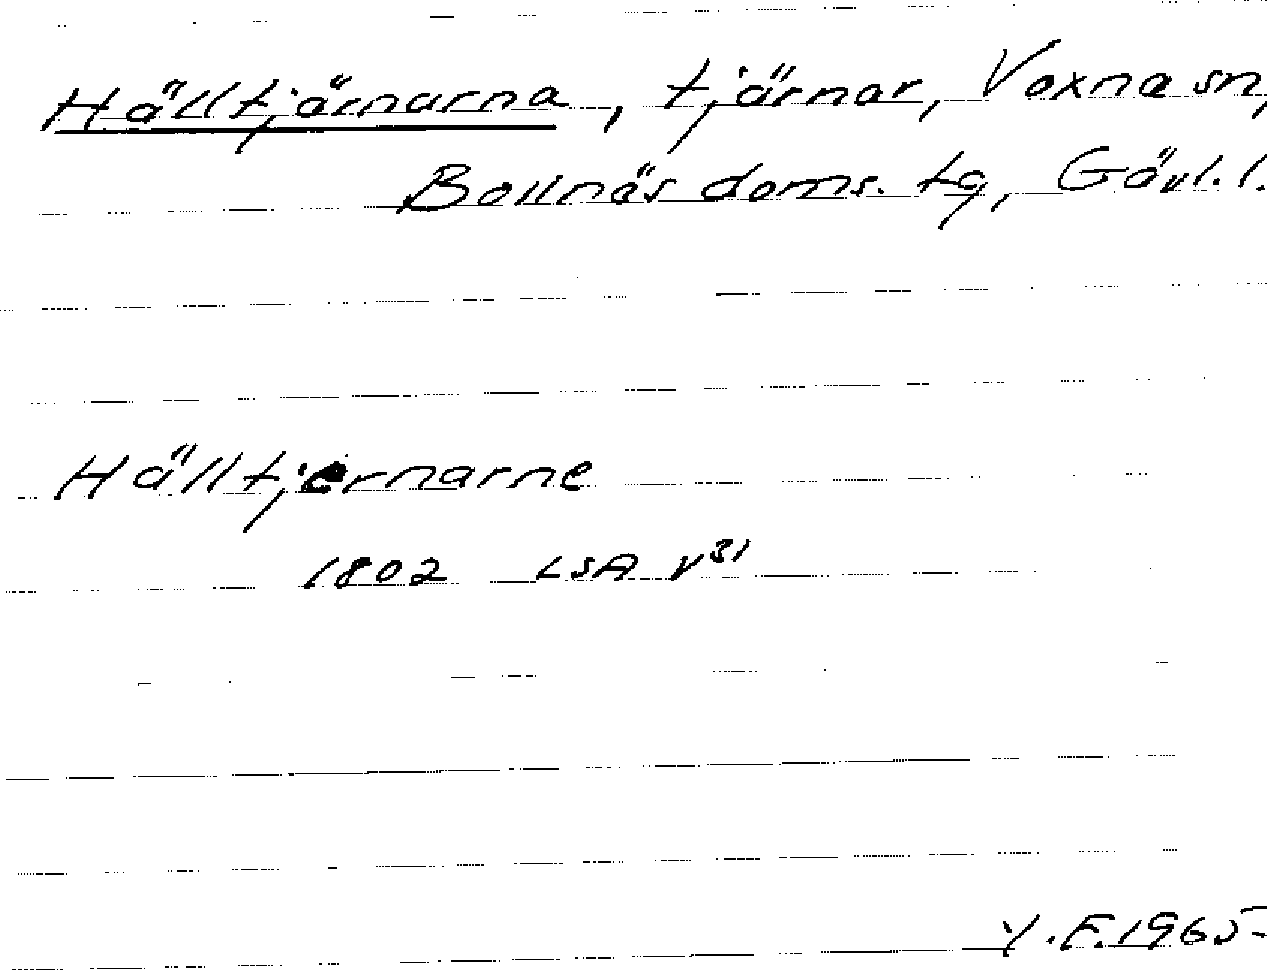 Hälltjärnarna, tjärnar, Voxna sn,
Bollnäs doms. tg, Gävl. l.
Hälltjernarne
1802 LSA V31
Y.F. 1965